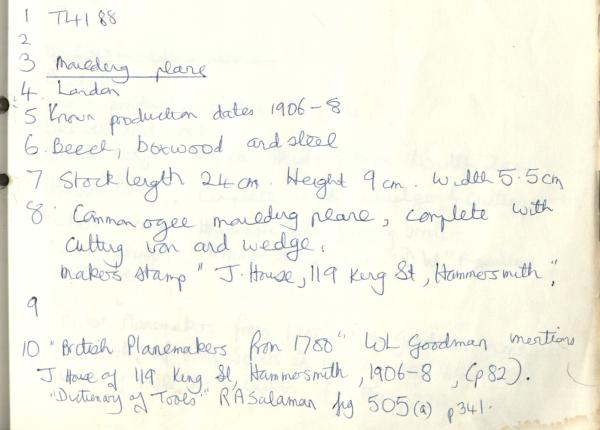 1 TL4188
2
3 Moulding plane
4. London
5 Known production dates 1906-8
6. Beech, boxwood and steel
7 Stock length 24cm. Height 9cm. Width 5.5cm
8. Common ogee moulding plane, complete with
cutting iron and wedge.
makers stamp "J. House, 119 King St, Hammersmith".
9
10 "British Planemakers from 1700" WL Goodman mentions
J House of 119 King St, Hammersmith, 1906-8, (p82).
"Dictionary of Tools" RA Salaman fig 505(a) p341.